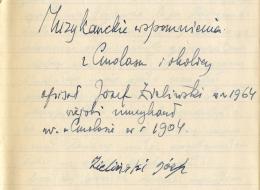 Muzykanckie wspomnienia
z Cmolasa i okolicy
opisał Józef Zieliński w r 1964
wiejski muzykant
ur. w Cmolasie w r 1904.
Zieliński Józef